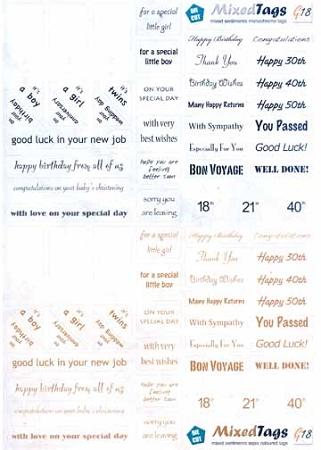 for a special
little girl
DIE
CUT
MixedTags G18
mixed sentiments monochrome tags
for a special
little boy
Happy Birthday
Congratulations
Thank You
Happy 30th
it's
a boy
it's
a girl
it's
twins
ON YOUR
SPECIAL DAY
Birthday Wishes
Happy 40th
Many Happy Returns
Happy 50th
good luck in your new job
with very
best wishes
With Sympathy
You Passed
Especially For You
Good Luck!
happy birthday from all of us
hope you are
feeling
better soon
BON VOYAGE
WELL DONE!
congratulations on your baby's christening
with love on your special day
sorry you
are leaving
18th
21st
40th
for a special
little girl
Happy Birthday
Congratulations
Thank You
Happy 30th
for a special
little boy
Birthday Wishes
Happy 40th
it's
a boy
it's
a girl
it's
twins
ON YOUR
SPECIAL DAY
Many Happy Returns
Happy 50th
With Sympathy
You Passed
good luck in your new job
with very
best wishes
Especially For You
Good Luck!
happy birthday from all of us
hope you are
feeling
better soon
BON VOYAGE
WELL DONE!
congratulations on your baby's christening
18th
21st
40th
with love on your special day
sorry you
are leaving
DIE
CUT
MixedTags G18
mixed sentiments sepia coloured tags